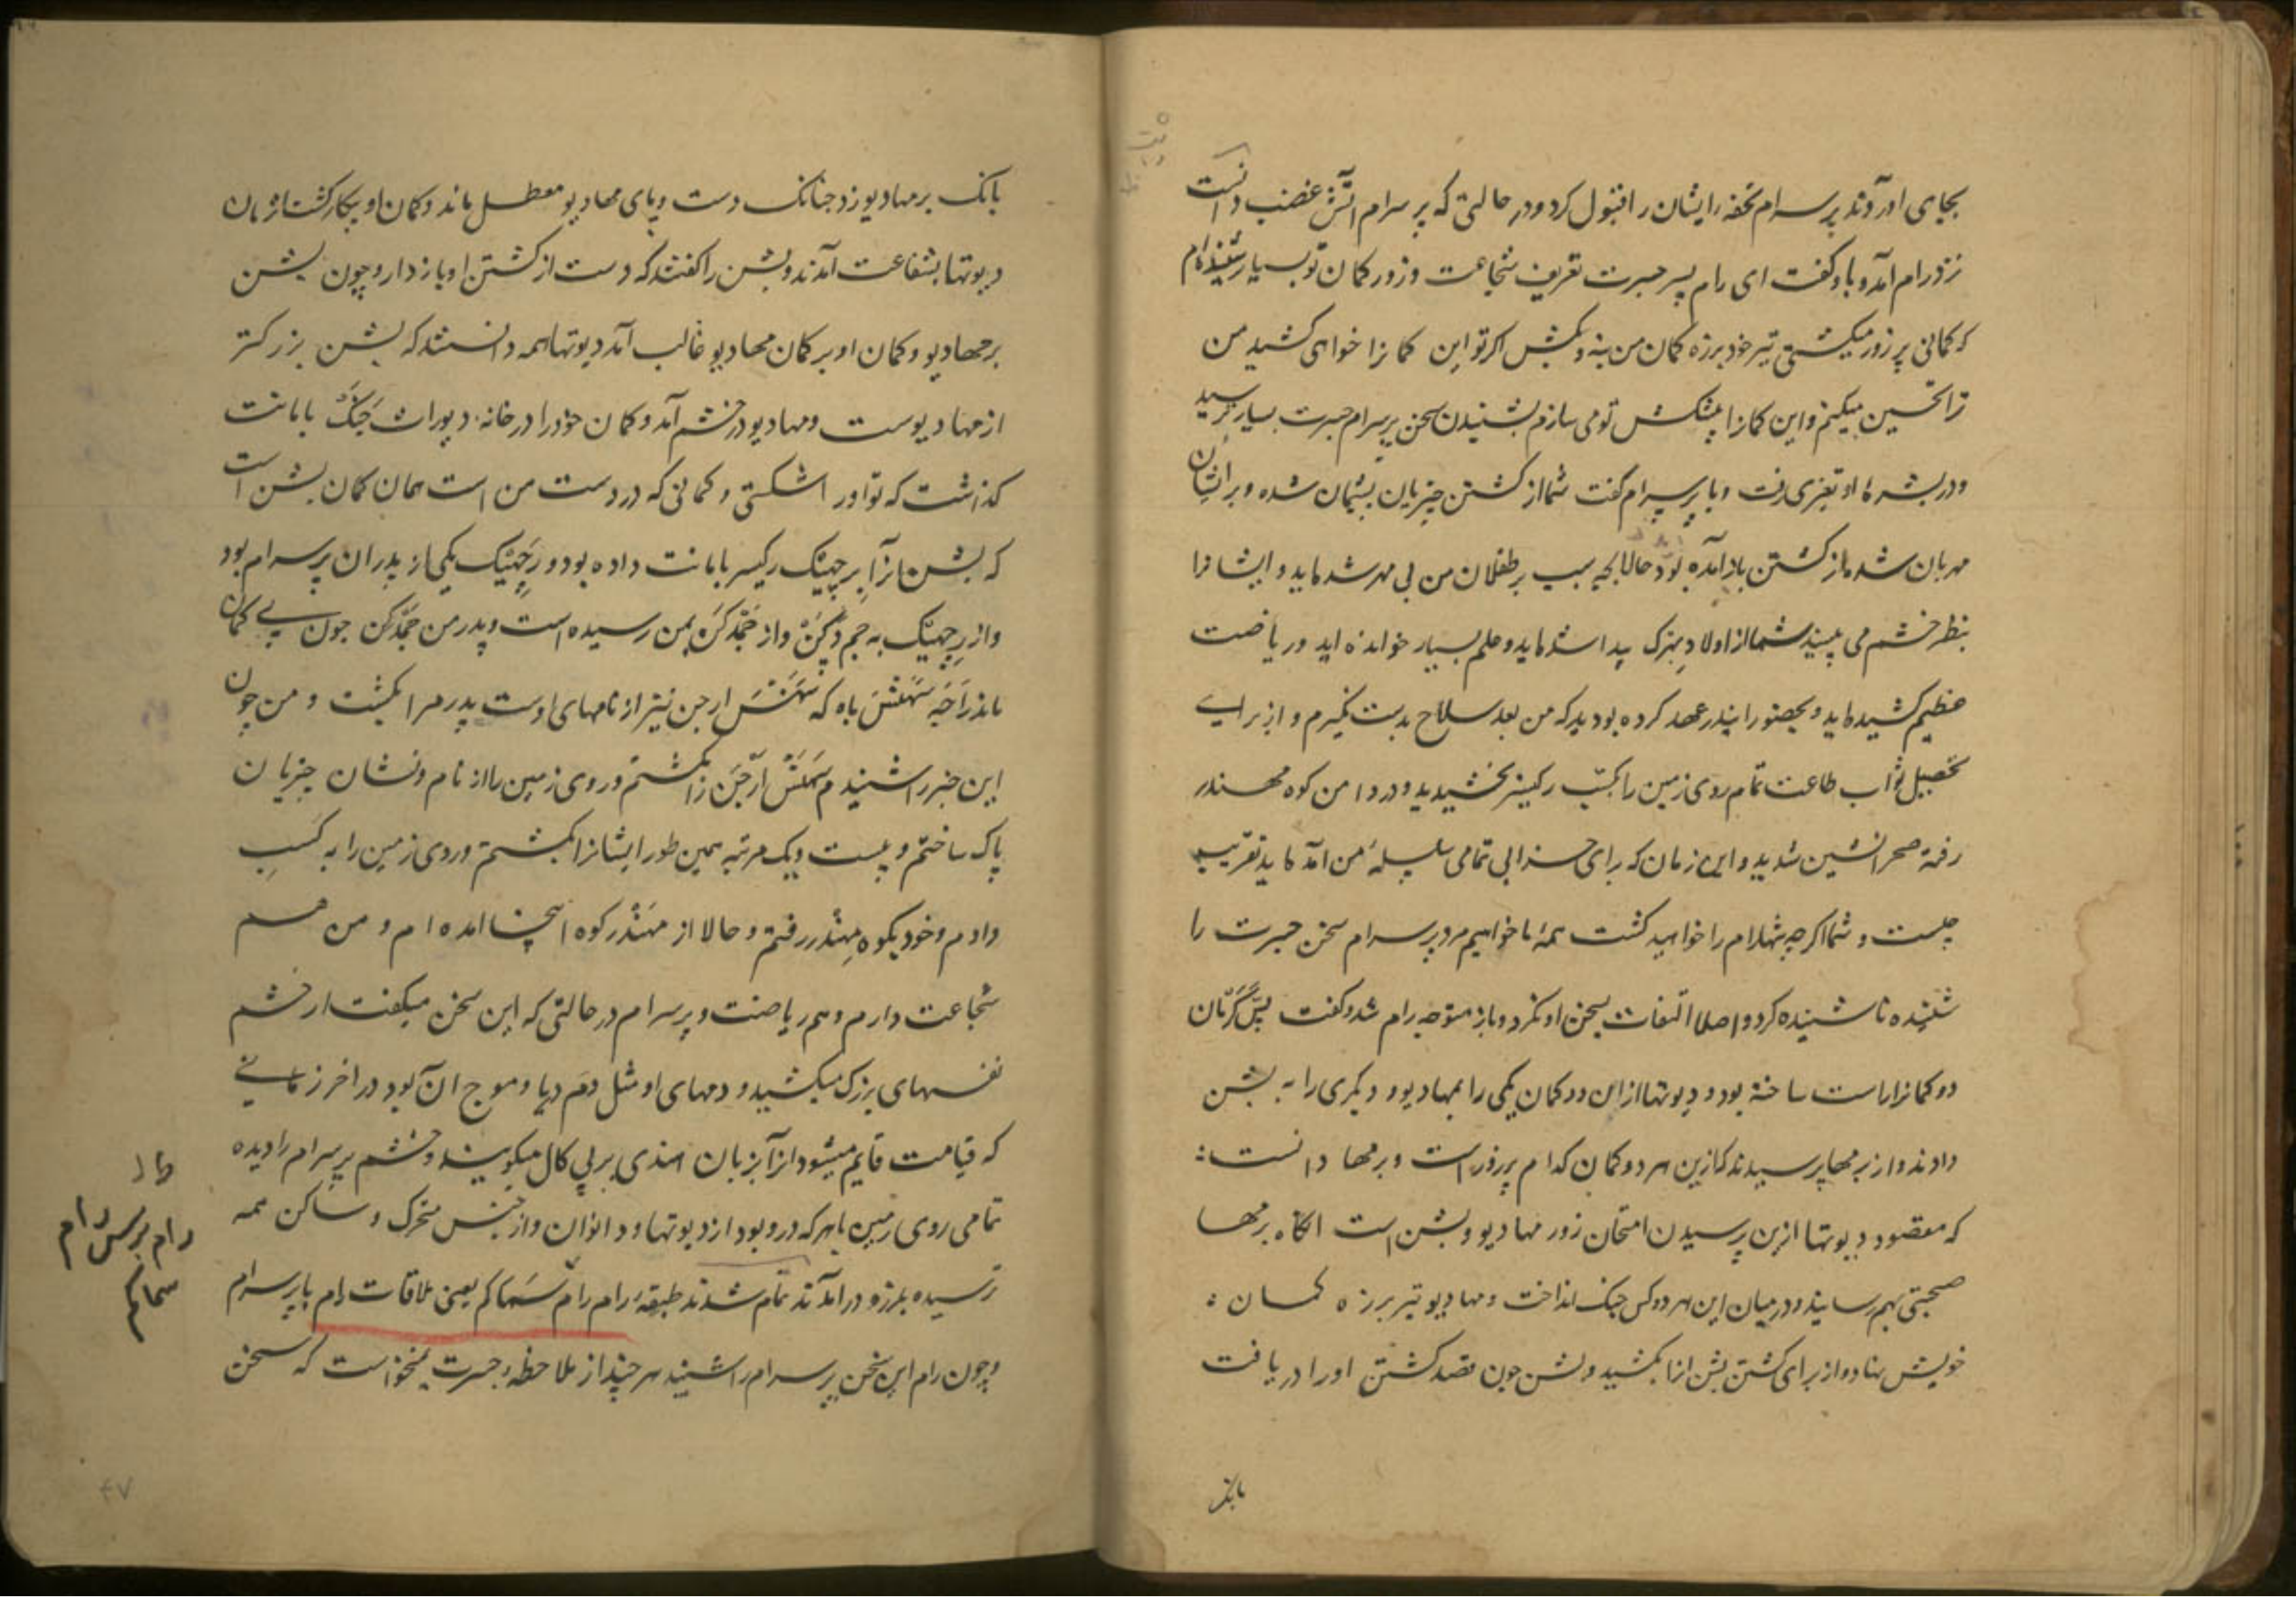 بجای آوردند پرسرام تحفه ایشان را قبول کرد و در حالتی که پرسرام آتش غضب داشت
نزد رام آمد و با او گفت ای رام پسر جسرت تعریف شجاعت و زور کمان تو بسیار شنیده‌ام
که کمانی پر زور میکشی تیر خود بر زه کمان من بنه و بکش اگر تو این کمانرا خواهی کشید من
ترا تحسین میکنم و این کمانرا پیشکش تو می سازم بشنیدن سخن پرسرام جسرت بسیار ترسید
و در بشره او تغیری رفت و با پرسرام گفت شما از کشتن چتریان پشیمان شده و بر ایشان
مهربان شده از کشتن باز آمده بود حالا بچه سبب بر طفلان من بی مهر شده‌اید و ایشانرا
بنظر خشم می بینید شما از اولاد بزرگ پیدا شده‌اید و علم بسیار خوانده اید و ریاضت
عظیم کشیده‌اید و بحضور اندر عهد کرده بودید که من بعد سلاح بدست نگیرم و از برای
تحصیل ثواب طاعت تمام روی زمین را بکسب رکیسر بخشیدید و در دامن کوه مهندر
رفته صحرانشین شدید و این زمان که برای خرابی تمامی سلسله من آمده‌اید تقریب
چیست و شما اگر چه تنها رام را خواهید کشت همه ما خواهیم مرد پرسرام سخن جسرت را
شنیده ناشنیده کرد و اصلا التفات بسخن او نکرد و باز متوجه رام شد و گفت بسکرمان
دو کمانرا راست ساخته بود و دیوتها از این دو کمان یکی را بمهادیو و دیگری را به بشن
دادند و از برمها پرسیدند که ازین هر دو کمان کدام پر زور است و برمها دانست
که مقصود دیوتها ازین پرسیدن امتحان زور مهادیو و بشن است آنگاه برمها
صحبتی بهم رسانید و در میان این هر دو کس جنگ انداخت و مهادیو تیر بر زه کمان
خویش نهاد و از برای کشتن بشن آنرا بکشید و بشن چون قصد کشتن او را دریافت
بانک
بانک بر مهادیو زد چنانک دست و پای مهادیو معطل ماند و کمان او بیکار گشت آنزمان
دیوتها بشفاعت آمدند و بشن را گفتند که دست از کشتن او باز دار و چون بشن
بر مهادیو و کمان او بر کمان مهادیو غالب آمد دیوتها همه دانستند که بشن بزرگتر
از مهادیوست و مهادیو در خشم آمد و کمان خود را در خانه دیورات جنک بامانت
گذاشت که تو او را شکستی و کمانی که در دست من است همان کمان بشن است
که بشن آنرا برچیک رکیسر بامانت داده بود و رچیک یکی از پدران پرسرام بود
و از رچیک به جمدگن و از جمدگن بمن رسیده است و پدر من جمدگن چون بی کمان
ماند راجه سهنس باه که سهنس ارجن نیز از نامهای اوست پدر مرا بکشت و من چون
این خبر را شنیدم سهنس ارجن را بکشتم و روی زمین را از نام و نشان چتریان
پاک ساختم و بیست و یک مرتبه همین طور ایشانرا بکشتم و روی زمین را به کسب
دادم و خود بکوه مهندر رفتم و حالا از مهندر کوه اینجا آمده ام و من هم
شجاعت دارم و هم ریاضت و پرسرام در حالتی که این سخن میگفت از خشم
نفسهای بزرگ میکشید و دمهای او مثل دم دریا و موج آن بود در آخر زمانی
که قیامت قایم میشود آنرا بزبان هندی پرلی کال میگویند و خشم پرسرام را دیده
تمامی روی زمین با هر که درو بود از دیوتها و دانوان و از جنس متحرک و ساکن همه
ترسیده بلرزه در آمدند تمام شدند طبقه رام رام سماکم یعنی ملاقات رام با پرسرام
و چون رام این سخن پرسرام را شنید هر چند از ملاحظه جسرت نمیخواست که سخن
رام پرس رام
سماکم
۴۷